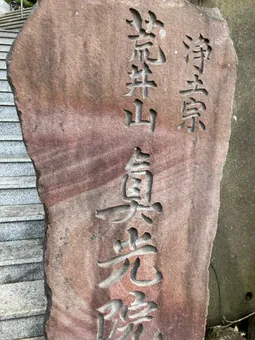 浄土宗
荒井山
眞光院